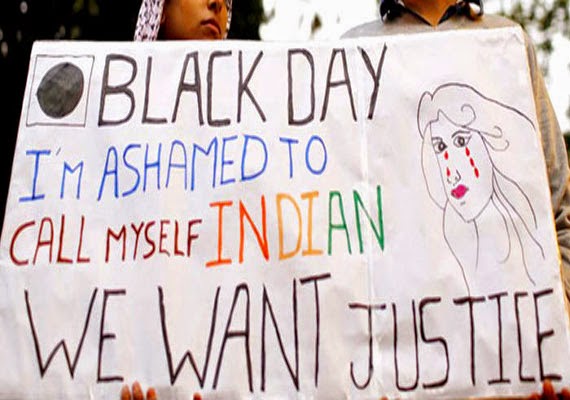 BLACK DAY
I'M ASHAMED TO
CALL MYSELF INDIAN
WE WANT JUSTICE